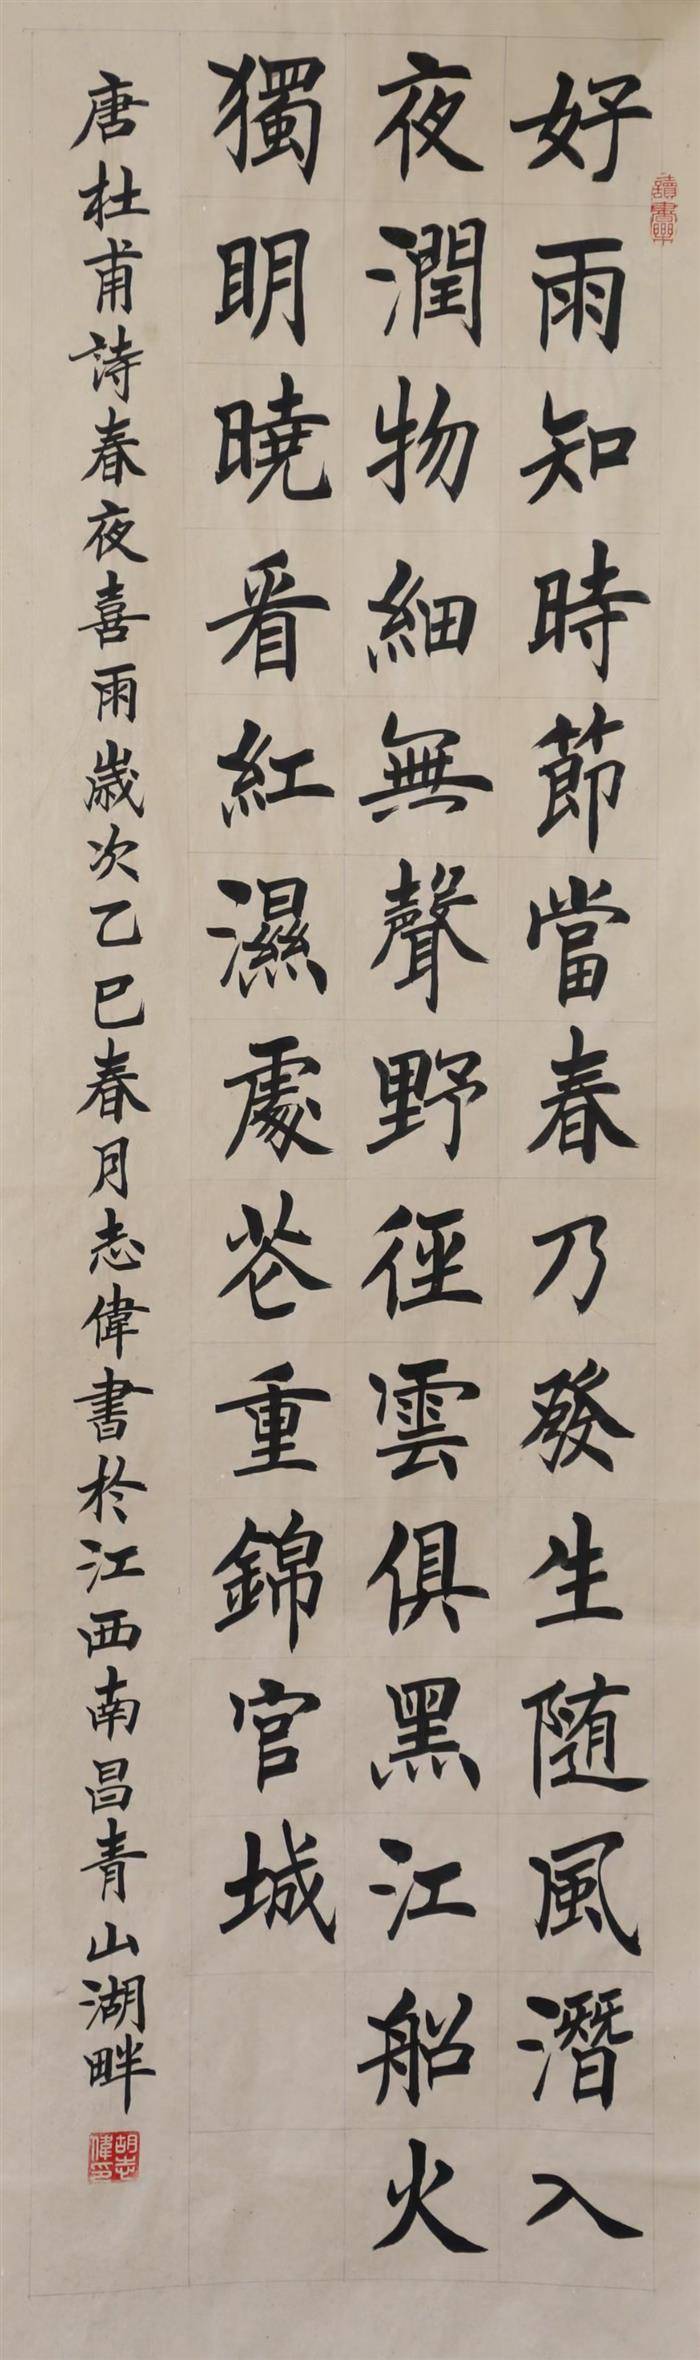 好雨知時節當春乃發生隨風潛入
夜潤物細無聲野徑雲俱黑江船火
獨明曉看紅濕處花重錦官城
唐杜甫詩春夜喜雨歲次乙巳春月志偉書於江西南昌青山湖畔
讀書樂
胡志偉印